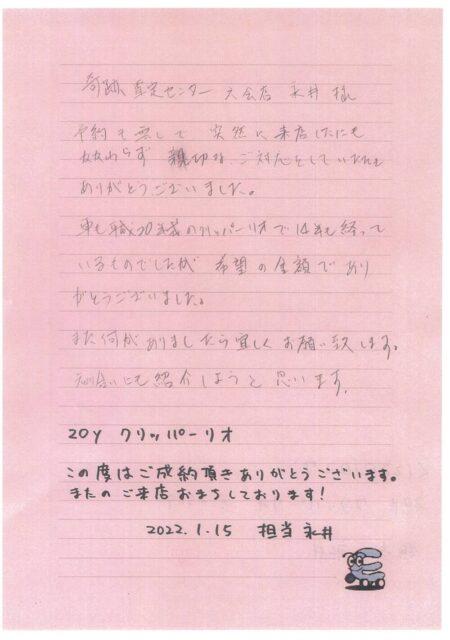 奇跡 査定センター 大会店 永井 様
予約も無しで 突然に来店したにも
かかわらず 親切な ご対応をしていただき
ありがとうございました。
車も 20年 のクリッパーリオで 14年も経って
いるものでしたが 希望の金額であり
がとうございました。
また何かありましたら宜しくお願い致します。
知り合いにも紹介しようと思います。
20Y クリッパーリオ
この度はご成約頂きありがとうございます。
またのご来店おまちしております！
2022.1.15 担当 永井